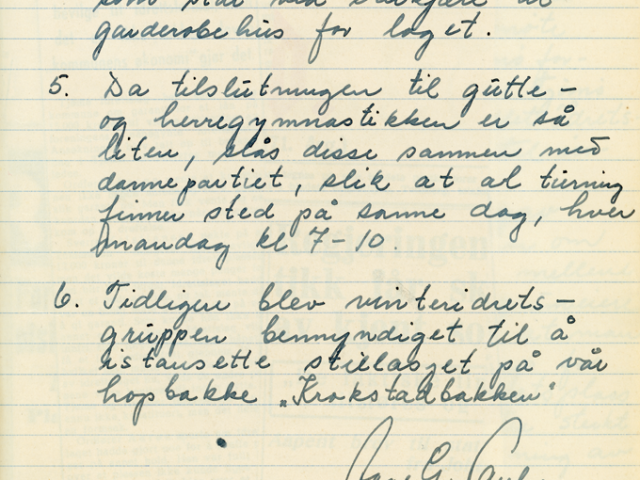 garderobehus for laget.
5. Da tilslutningen til gutte-
og herregymnastikken er så
liten, slås disse sammen med
damepartiet, slik at al turning
finner sted på samme dag, hver
mandag kl 7-10.
6. Tidligere blev vinteridrets-
gruppen bemyndiget til å
istansette stillaset på vår
hopbakke „Krokstadbakken"